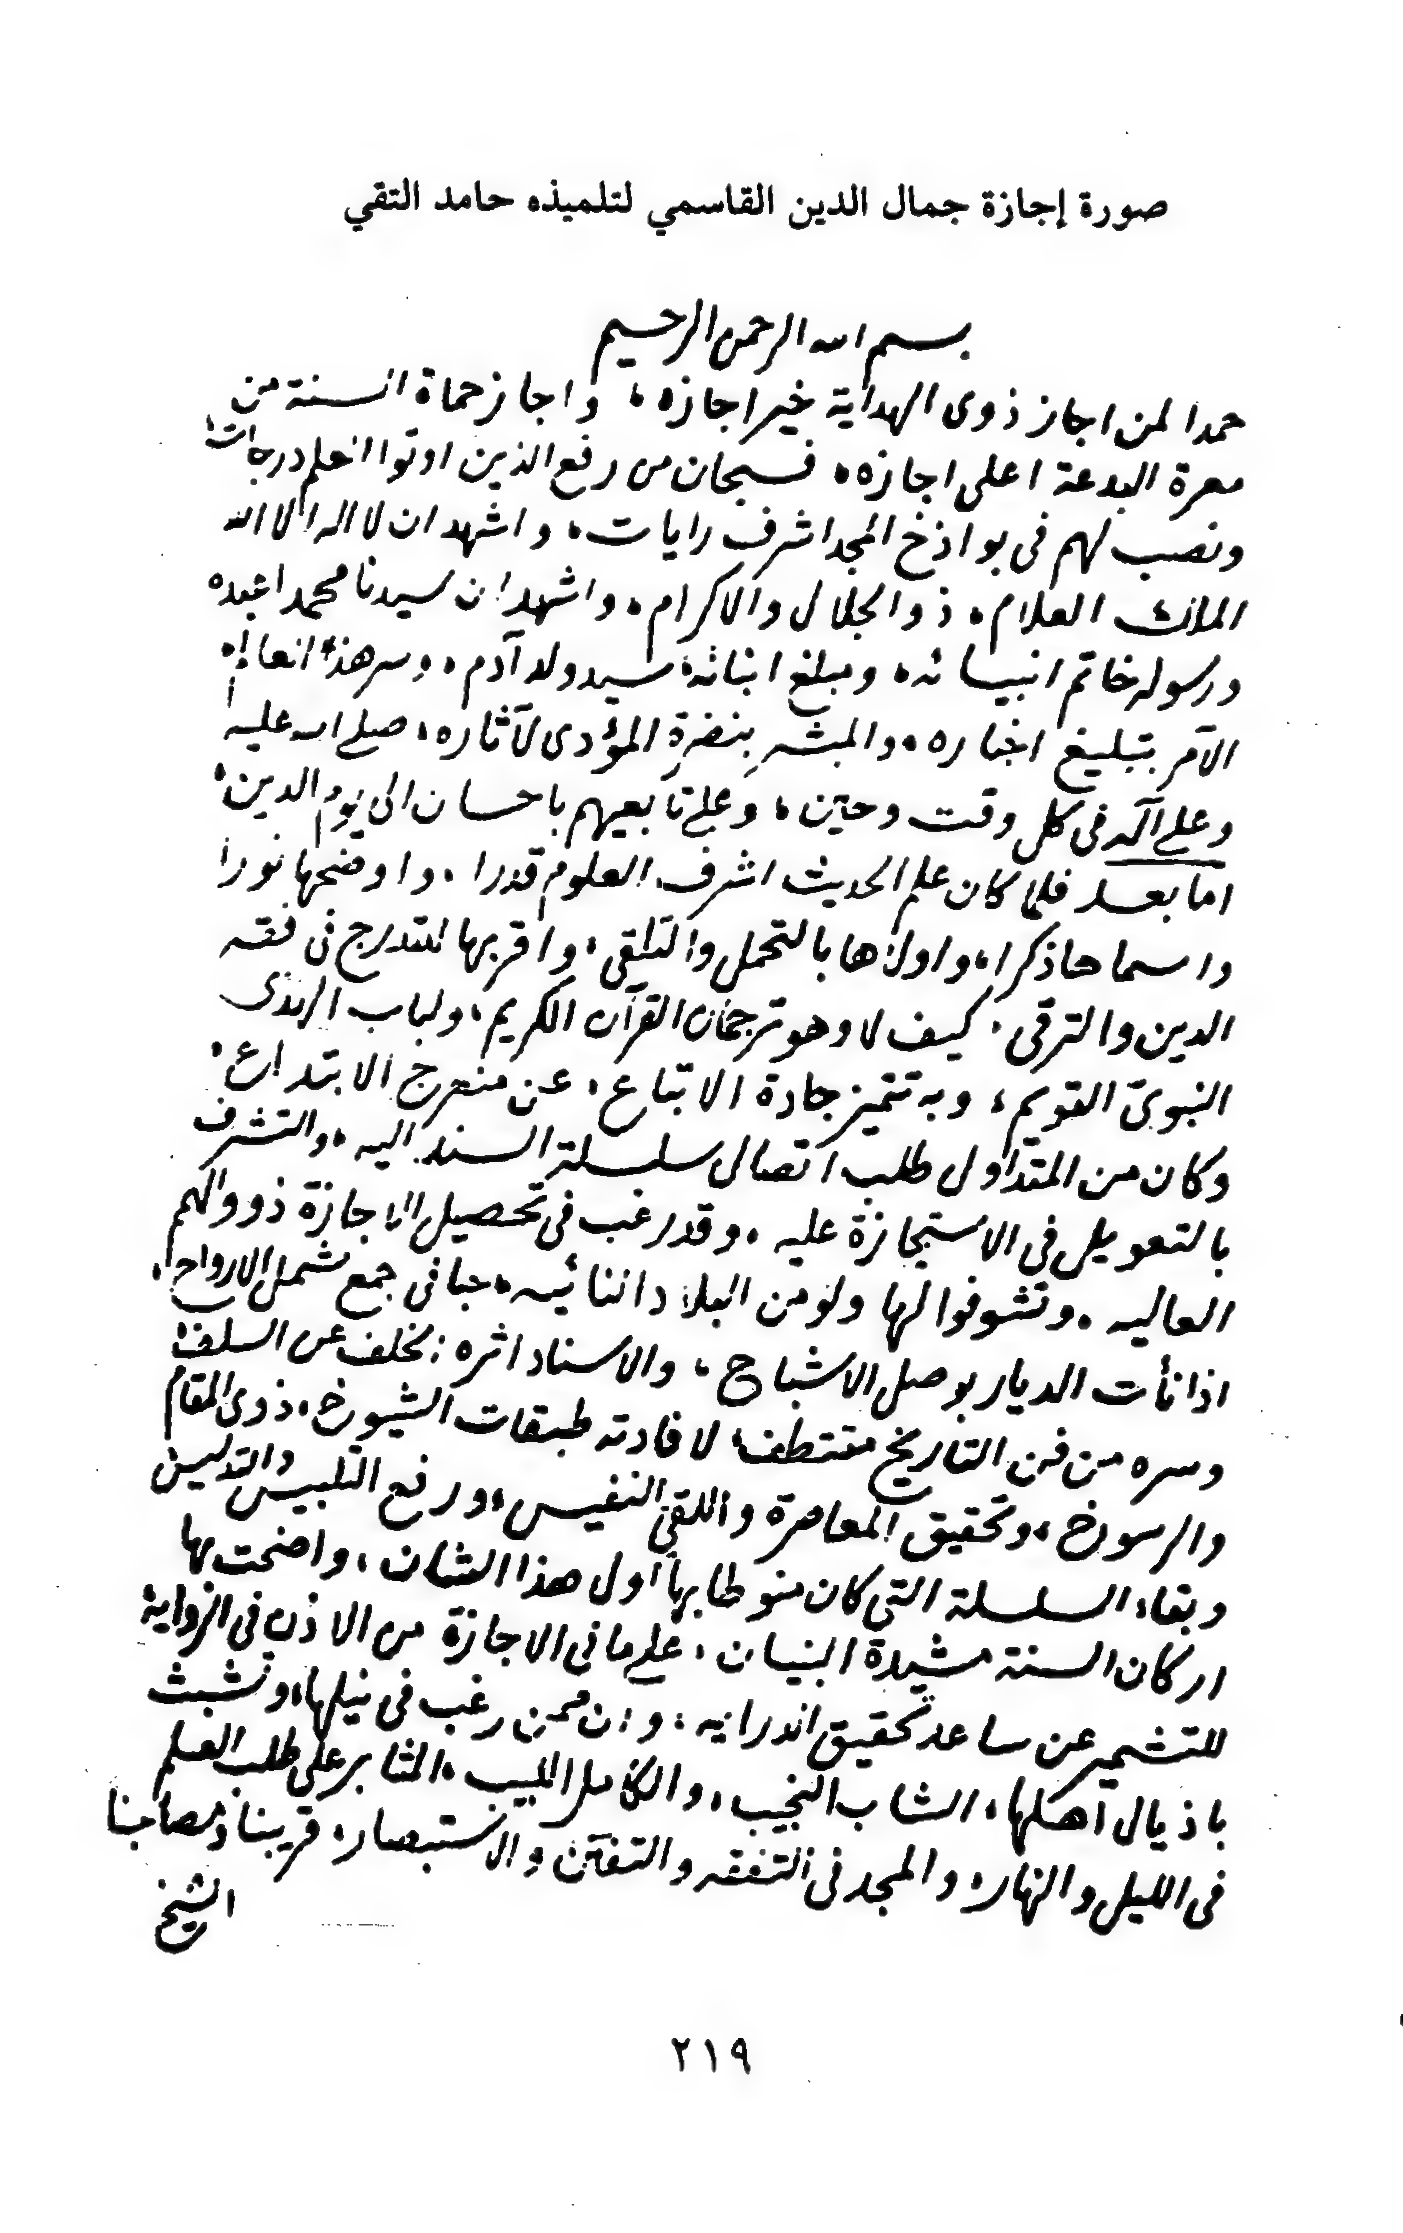 صورة إجازة جمال الدين القاسمي لتلميذه حامد التقي
بسم الله الرحمن الرحيم
حمدا لمن اجاز ذوى الهداية خير اجازه، واجاز حماة السنة من
معرة البدعة اعلى اجازه، فسبحان من رفع الذين اوتوا العلم درجات
ونصب لهم فى بواذخ المجد اشرف رايات، واشهد ان لا اله الا الله
الملك العلام، ذو الجلال والاكرام، واشهد ان سيدنا محمدا عبده
ورسوله خاتم انبيائه، ومبلغ انبائه، سيد ولد آدم، وسر هذا العالم
الآمر بتبليغ اخباره، والمبشر بنضرة المؤدى لآثاره، صلى الله عليه
وعلى آله فى كل وقت وحين، وعلى تابعيهم باحسان الى يوم الدين،
اما بعد فلما كان علم الحديث اشرف العلوم قدرا، واوضحها نورا
واسماها ذكرا، واولاها بالتحمل والتلقى، واقربها للتدرج فى فقه
الدين والترقى، كيف لا وهو ترجمان القرآن الكريم، ولباب الهدى
النبوىّ القويم، وبه تتميز جادة الاتباع، عن منعرج الابتداع،
وكان من المتداول طلب اتصال سلسلة السند اليه، والتشرف
بالتعويل فى الاستجازة عليه، وقد رغب فى تحصيل الاجازة ذوو الهمم
العاليه، وتشوفوا لها ولو من البلاد النائيه، حبا فى جمع شمل الارواح،
اذا نأت الديار بوصل الاشباح، والاسناد اثره بخلف عن السلف
وسره من فن التاريخ مقتطف، لافادته طبقات الشيوخ، ذوى المقام
والرسوخ، وتحقيق المعاصرة واللقى النفيس، ورفع التلبيس والتدليس
وبقاء السلسلة التى كان منوطا بها اول هذا الشان، واضحت بها
اركان السنة مشيدة البنيان، على ما فى الاجازة من الاذن فى الرواية
للتشمير عن ساعد تحقيق الدرايه، وان ممن رغب فى نيلها، وتشبث
باذيال اهلها، الشاب النجيب، والكامل اللبيب، المثابر على طلب العلم
فى الليل والنهار، والمجد فى التفقه والتفنن والاستبصار، قريبنا ومصاحبنا
الشيخ
٢١٩